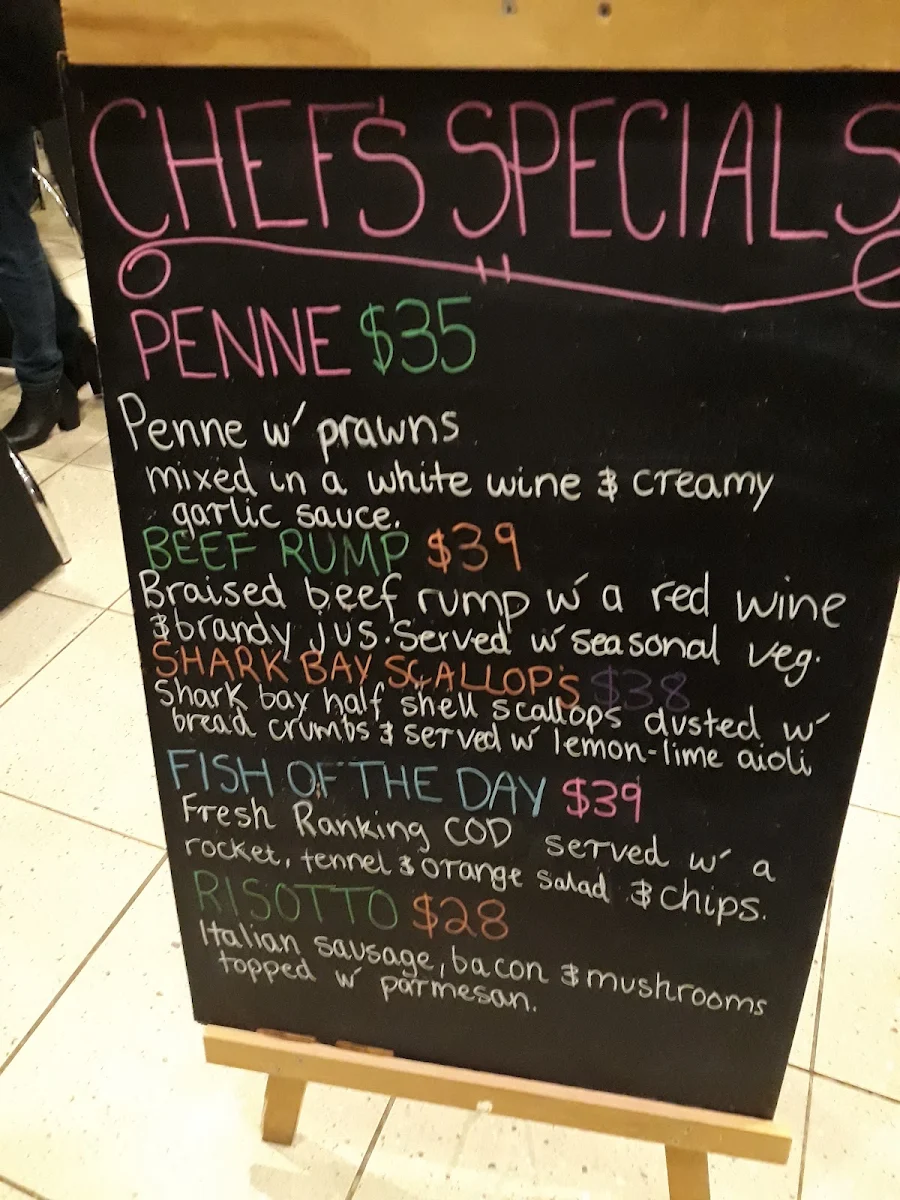 CHEF'S SPECIALS
PENNE $35
Penne w' prawns
mixed in a white wine & creamy
garlic sauce.
BEEF RUMP $39
Braised beef rump w' a red wine
& brandy jus. Served w' seasonal veg.
SHARK BAY SCALLOP'S $38
Shark bay half shell scallops dusted w'
bread crumbs & served w' lemon-lime aioli
FISH OF THE DAY $39
Fresh Ranking COD served w' a
rocket, fennel & orange salad & chips.
RISOTTO $28
Italian sausage, bacon & mushrooms
topped w' parmesan.